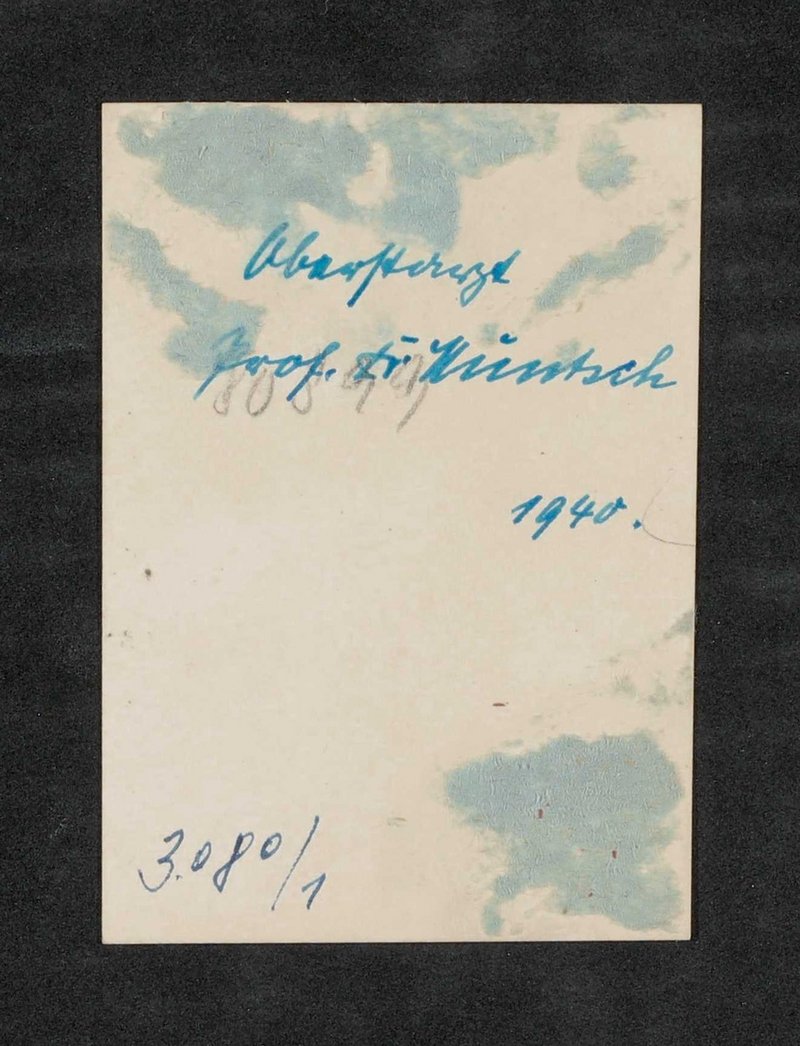 Oberstarzt
Prof. Dr. Kuntsch
1940.
3.080/1